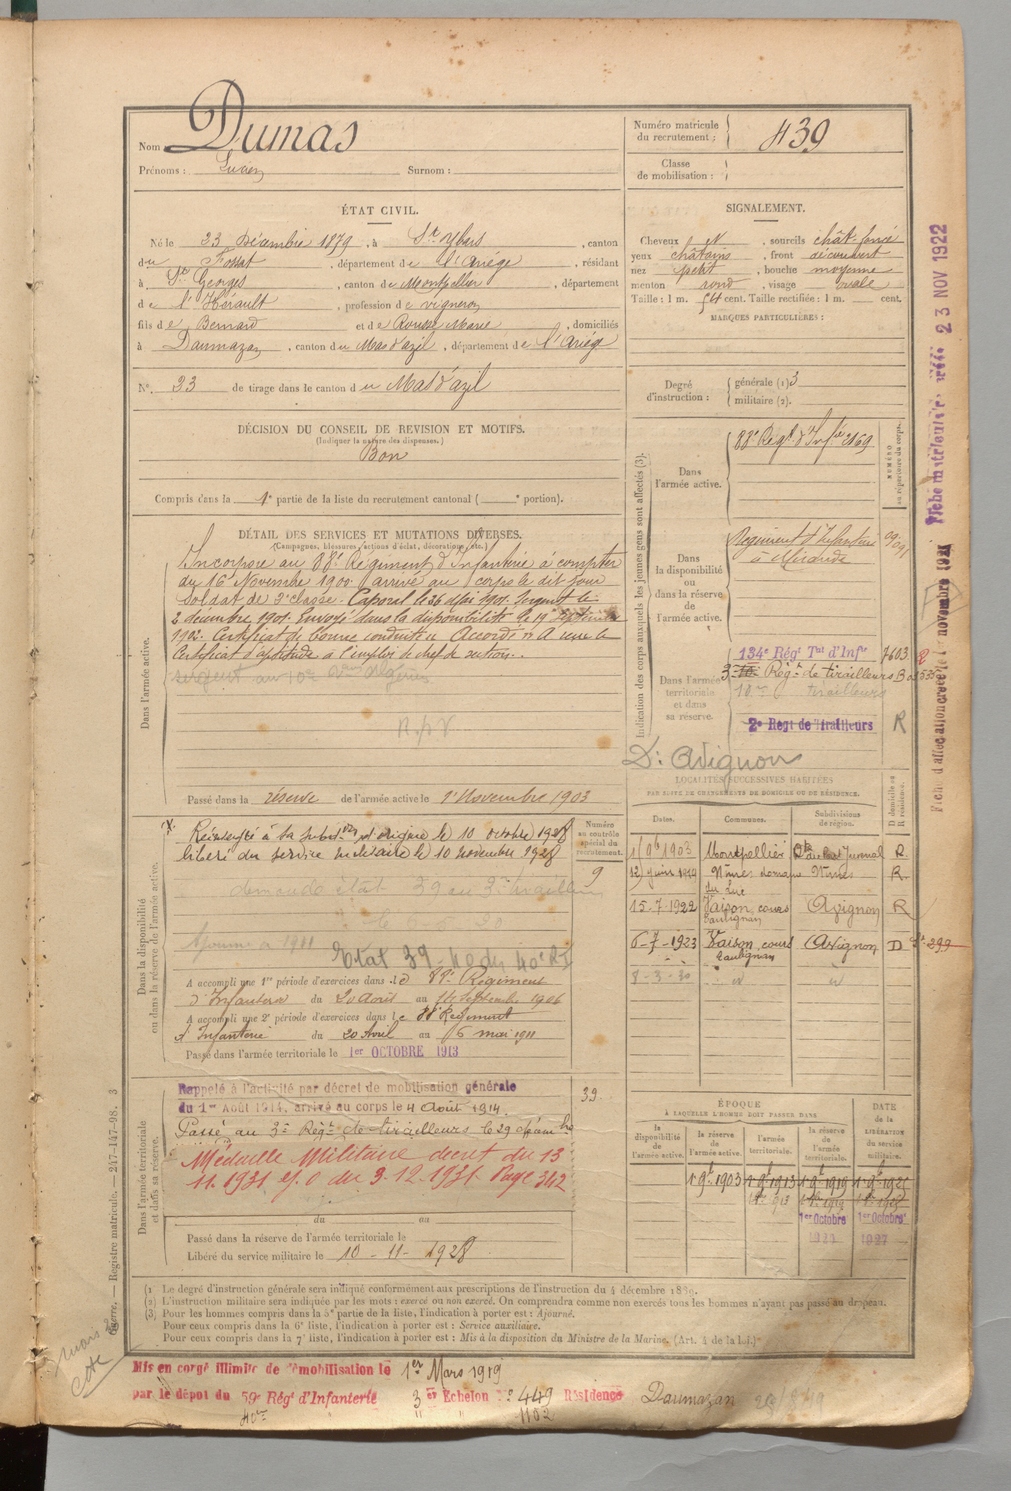 Nom Dumas
Prénoms : Lucien Surnom :
Numéro matricule du recrutement : 439
Classe de mobilisation :
ÉTAT CIVIL.
Né le 23 Décembre 1879, à St Ybars, canton
du Fossat, département de l'Ariège, résidant
à St Georges, canton de Montpellier, département
de l'Hérault, profession de vigneron
fils de Bernard et de Rousse Marie, domiciliés
à Daumazan, canton du Mas d'azil, département de l'Ariège
N° 23 de tirage dans le canton du Mas d'azil
SIGNALEMENT.
Cheveux et, sourcils chât. foncé
yeux châtains, front découvert
nez petit, bouche moyenne
menton rond, visage ovale
Taille : 1 m. 54 cent. Taille rectifiée : 1 m. cent.
MARQUES PARTICULIÈRES :
Degré d'instruction : générale (1) 3
militaire (2).
DÉCISION DU CONSEIL DE REVISION ET MOTIFS.
(Indiquer la nature des dispenses.)
Bon
Compris dans la 1e partie de la liste du recrutement cantonal ( e portion).
DÉTAIL DES SERVICES ET MUTATIONS DIVERSES.
(Campagnes, blessures, actions d'éclat, décorations, etc.)
Dans l'armée active.
Incorporé au 88e Régiment d'Infanterie à compter
du 16 Novembre 1900. arrivé au corps le dit jour
soldat de 2e classe. Caporal le 26 Mai 1901. Sergent le
2 décembre 1901. Envoyé dans la disponibilité le 19 Septembre
1902. Certificat de bonne conduite Accordé. A reçu le
Certificat d'aptitude à l'emploi de chef de section.
sergent au 10e
Passé dans la réserve de l'armée active le 1er Novembre 1903
Dans la disponibilité ou dans la réserve de l'armée active.
Réintégré à sa subdon d'origine le 10 octobre 1928
libéré du service militaire le 10 novembre 1928
demande état 39 au 3e tirailleurs
Etat 39
A accompli une 1re période d'exercices dans le 88e Régiment
d'Infanterie du 20 Août au Septembre 1906
A accompli une 2e période d'exercices dans le 88e Régiment
d'Infanterie du 20 Avril au 6 mai 1911
Passé dans l'armée territoriale le 1er OCTOBRE 1913
Numéro au contrôle spécial du recrutement.
9
39
Dans l'armée territoriale et dans sa réserve.
Rappelé à l'activité par décret de mobilisation générale
du 1er Août 1914, arrivé au corps le 4 Août 1914.
Passé au 3e Régt de tirailleurs le 29
Médaille Militaire décret du 13
11.1931 J.O du 3.12.1931 Page 342
du au
Passé dans la réserve de l'armée territoriale le
Libéré du service militaire le 10-11-1928
Indication des corps auxquels les jeunes gens sont affectés (3).
NUMÉRO au répertoire du corps.
Dans l'armée active.
88e Régt d'Infie 2169
Dans la disponibilité ou dans la réserve de l'armée active.
Régiment d'Infanterie
à Mirande
Dans l'armée territoriale et dans sa réserve.
134e Régt Tal d'Infie 7603
3e Régt de tirailleurs
tirailleurs
2e Régt de Tirailleurs R
D: Avignon
LOCALITÉS SUCCESSIVES HABITÉES
PAR SUITE DE CHANGEMENTS DE DOMICILE OU DE RÉSIDENCE.
Dates. Communes. Subdivisions de région. D domicile ou R résidence.
1903 Montpellier R
12 juin 1919 Nîmes R
15-7-1922 Vaison, cours Taulignan Avignon R
6-7-1923 Vaison, cours Taulignan Avignon D 299
8-3-30 id id
ÉPOQUE
À LAQUELLE L'HOMME DOIT PASSER DANS
DATE DE LA LIBÉRATION du service militaire.
la disponibilité de l'armée active. la réserve de l'armée active. l'armée territoriale. la réserve de l'armée territoriale.
1 9bre 1903 1 9bre 1913 1 9bre 1919 1 9bre 1925
1er Octobre 1er Octobre
1927
(1) Le degré d'instruction générale sera indiqué conformément aux prescriptions de l'instruction du 4 décembre 1889.
(2) L'instruction militaire sera indiquée par les mots : exercé ou non exercé. On comprendra comme non exercés tous les hommes n'ayant pas passé au drapeau.
(3) Pour les hommes compris dans la 5e partie de la liste, l'indication à porter est : Ajourné.
Pour ceux compris dans la 6e liste, l'indication à porter est : Service auxiliaire.
Pour ceux compris dans la 7e liste, l'indication à porter est : Mis à la disposition du Ministre de la Marine. (Art. 4 de la loi.)
Mis en congé illimité de démobilisation le 1er Mars 1919
par le dépôt du 59e Régt d'Infanterie 3e Echelon No 449 Résidence Daumazan
1102
Guerre. — Registre matricule. — 247-147-98. 3
Fiche matriculaire créée 23 NOV 1922
Fiche d'affectation créée le novembre